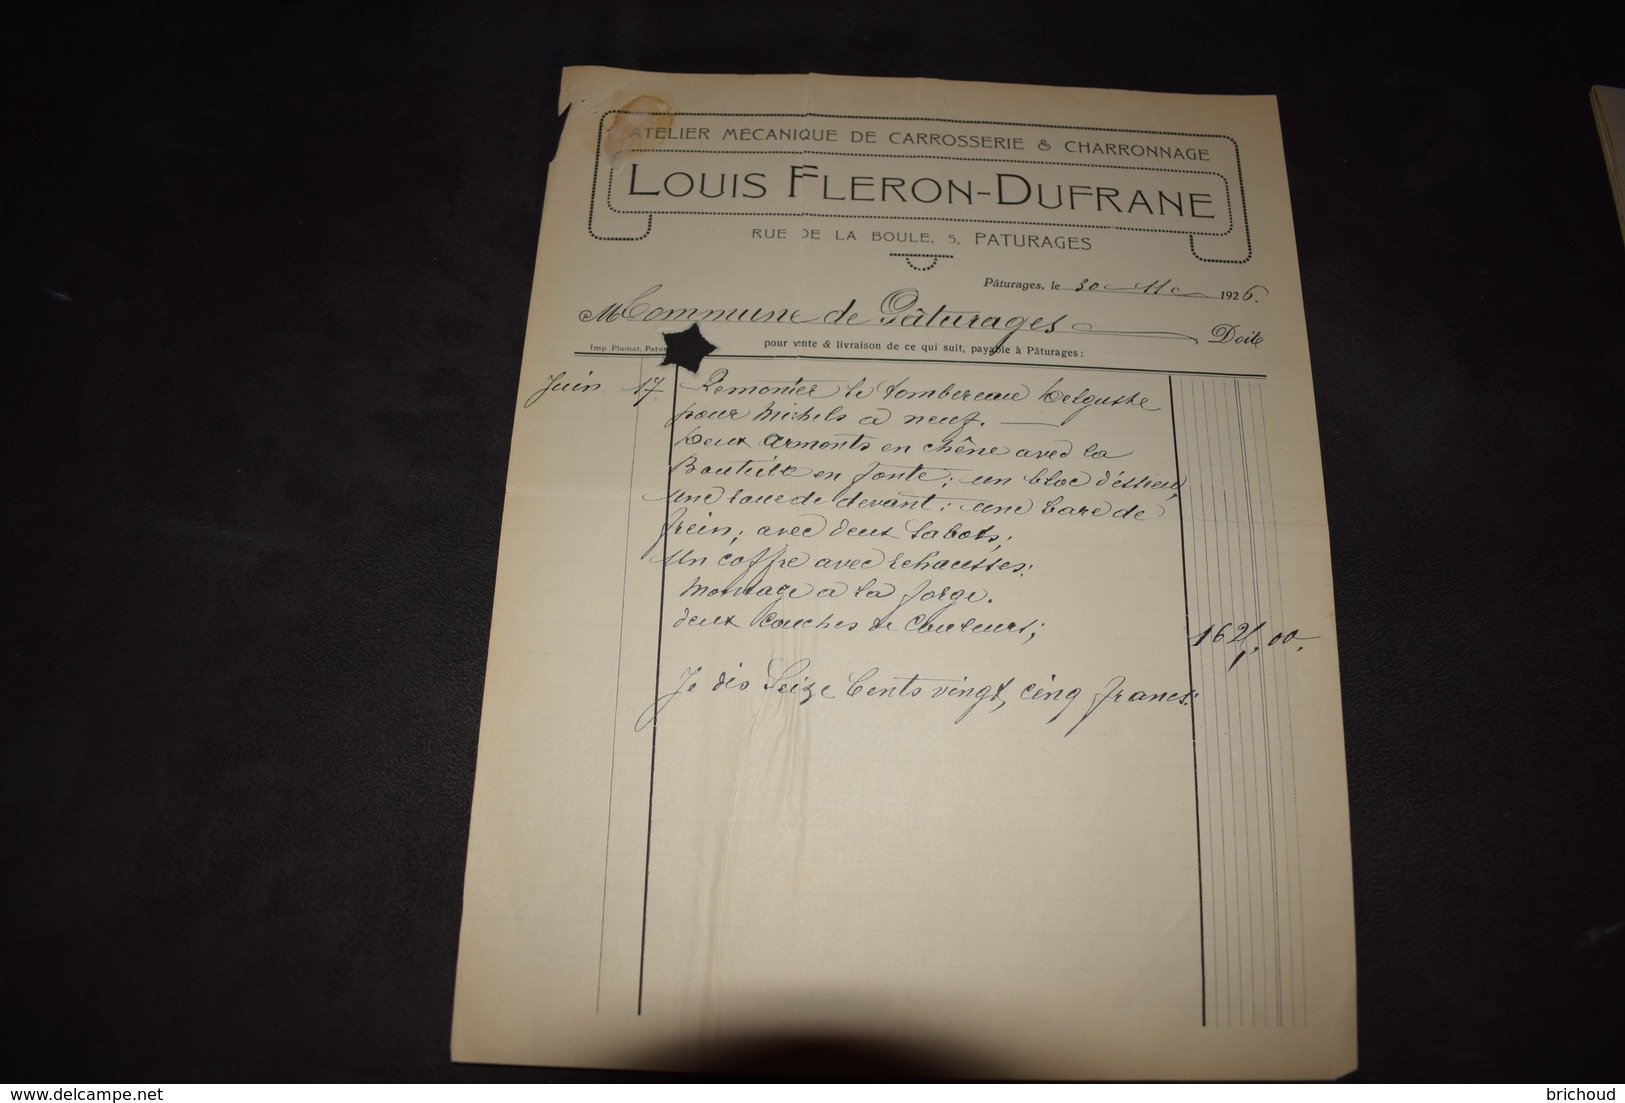 ATELIER MÉCANIQUE DE CARROSSERIE & CHARRONNAGE
LOUIS FLERON-DUFRANE
RUE DE LA BOULE, 5, PATURAGES
Pâturages, le 30 1926.
M Commune de Pâturages Doit
Imp Plumat, Patur
pour vente & livraison de ce qui suit, payable à Pâturages:
Juin 17 Remonter le tombereau
pour Michils à neuf.
Deux armonts en chêne avec la
en fonte; un bloc d'éssieu,
une roue de devant; une bare de
frein; avec deux sabots;
Un coffre avec rehausses:
Montage a la forge.
deux couches de couleurs; 1625,00.
Je dis Seize Cents vingt, cinq francs:
delcampe.net
brichoud